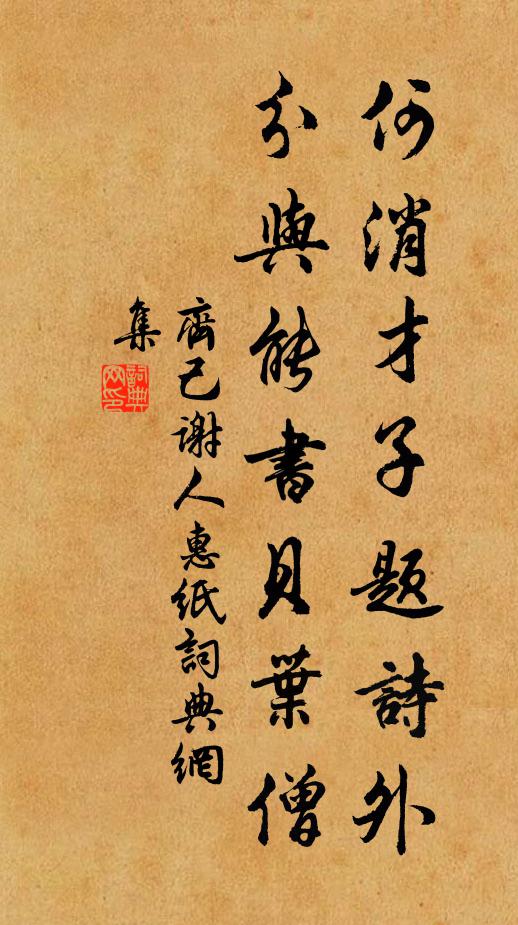 何消才子題詩外
分與能書貝葉僧
齊己謝人惠紙詞典網
集
詞典網印